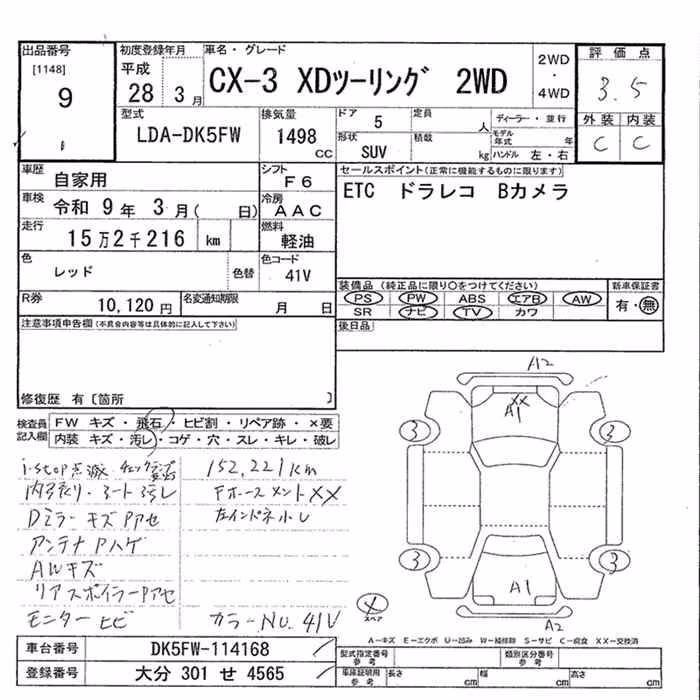 出品番号 初度登録年月 車名・グレード 2WD ・ 4WD 評価点
[1148] 9 平成 28 3月 CX-3 XDツーリング 2WD 3.5
型式 排気量 ドア 5 定員 人 ディーラー・並行 外装 内装
LDA-DK5FW 1498 CC 形状 SUV 積載 kg モデル年式 年 ハンドル 左・右 C C
車歴 自家用 シフト F6 セールスポイント(正常に機能するものに限ります)
車検 令和 9年 3月( 日) 冷房 AAC ETC ドラレコ Bカメラ
走行 15万2千216 km 燃料 軽油
色 レッド 色替 色コード 41V
装備品 (純正品に限り○をつけてください) 新車保証書
R券 10,120円 名変通知期限 月 日 PS PW ABS エアB AW 有・無
SR ナビ TV カワ
注意事項申告欄(不具合内容等は具体的に記入して下さい) 後日品
修復歴 有〔箇所 〕
検査員記入欄 FW キズ・飛石・ヒビ割・リペア跡・×要
内装 キズ・汚レ・コゲ・穴・スレ・キレ・破レ
A2
XX
A1
3 3
3 3
A1
A2
i-stop点滅 152,221km
シート汚レ XX
Dミラーキズ Pアセ 左インドネ小レ
アンテナPハゲ
AWキズ
リアスポイラーPアセ
モニターヒビ カラーNo. 41V
X スペア
A-キズ E-エクボ U-凹み W-補修跡 S-サビ C-腐食 XX-交換済
車台番号 DK5FW-114168 型式指定番号 参考 類別区分番号 参考
登録番号 大分 301 せ 4565 車庫証明用 参考 長さ cm 幅 cm 高さ cm